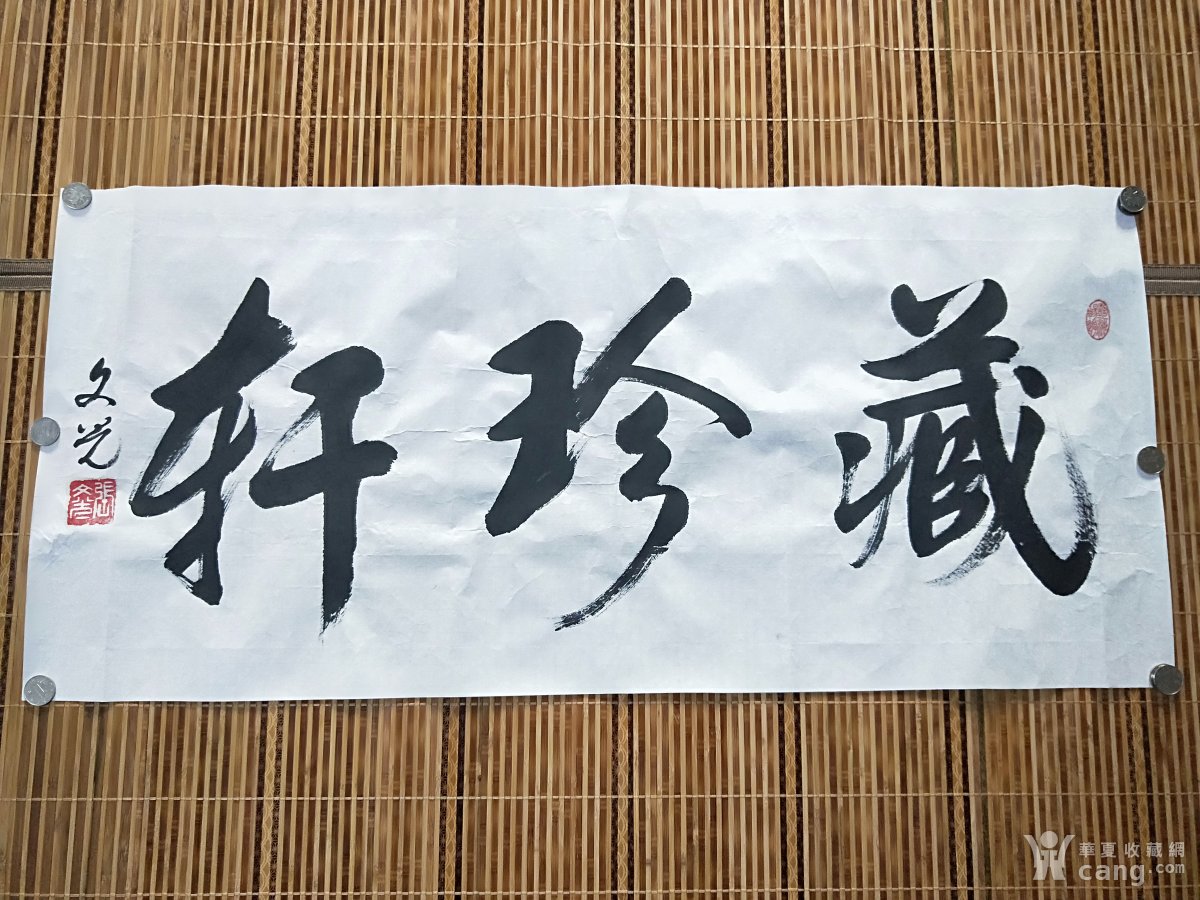 藏珍轩
文光
華夏收藏網
cang.com